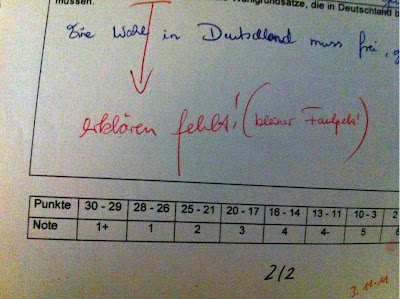 müssen.
Wahlgrundsätze, die in Deutschland
Die Wahl in Deutschland muss frei,
erklären fehlt! (kleiner Faulpelz!)
Punkte 30 - 29 28 - 26 25 - 21 20 - 17 16 - 14 13 - 11 10 - 3 2
Note 1+ 1 2 3 4 4- 5 6
2/2
3. 11. 11